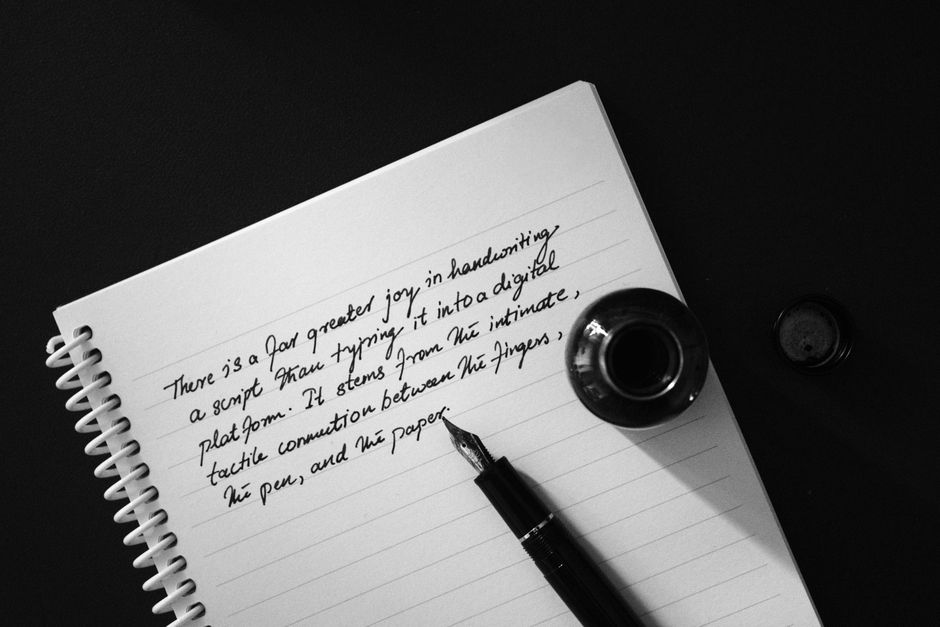 There is a far greater joy in handwriting
a script than typing it into a digital
platform. It stems from the intimate,
tactile connection between the fingers,
the pen, and the paper.